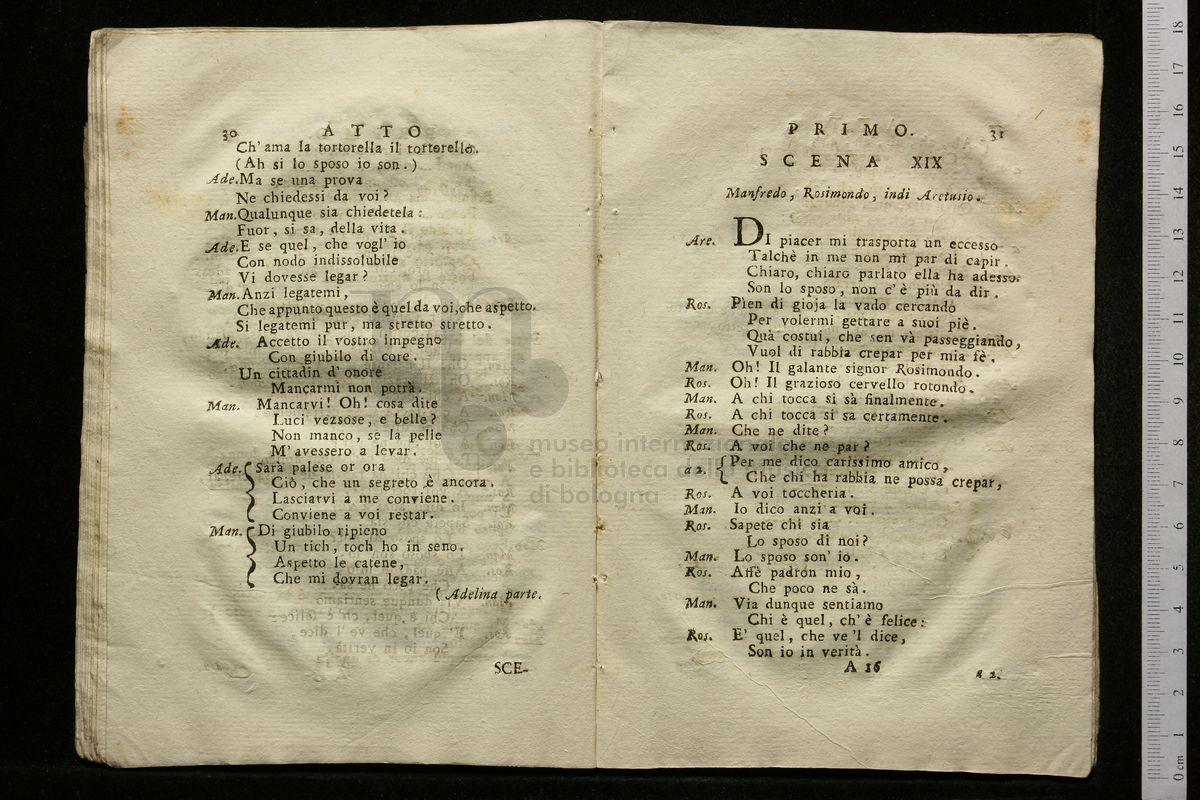 30 ATTO
Ch' ama la tortorella il tortorello.
(Ah si lo sposo io son.)
Ade. Ma se una prova
Ne chiedessi da voi?
Man. Qualunque sia chiedetela:
Fuor, si sa, della vita.
Ade. E se quel, che vogl' io
Con nodo indissolubile
Vi dovesse legar?
Man. Anzi legatemi,
Che appunto questo è quel da voi, che aspetto.
Si legatemi pur, ma stretto stretto.
Ade. Accetto il vostro impegno
Con giubilo di core.
Un cittadin d' onore
Mancarmi non potrà.
Man. Mancarvi! Oh! cosa dite
Luci vezsose, e belle?
Non manco, se la pelle
M' avessero a levar.
Ade. { Sarà palese or ora
Ciò, che un segreto è ancora.
Lasciarvi a me conviene.
Conviene a voi restar.
Man. { Di giubilo ripieno
Un tich, toch ho in seno.
Aspetto le catene,
Che mi dovran legar.
( Adelina parte.
SCE-
PRIMO. 31
SCENA XIX
Manfredo, Rosimondo, indi Arctusio.
Are. DI piacer mi trasporta un eccesso
Talchè in me non mi par di capir.
Chiaro, chiaro parlato ella ha adesso.
Son lo sposo, non c' è più da dir.
Ros. Pien di gioja la vado cercando
Per volermi gettare a suoi piè.
Quà costui, che sen và passeggiando,
Vuol di rabbia crepar per mia fè.
Man. Oh! Il galante signor Rosimondo.
Ros. Oh! Il grazioso cervello rotondo.
Man. A chi tocca si sà finalmente.
Ros. A chi tocca si sa certamente.
Man. Che ne dite?
Ros. A voi che ne par?
a 2. { Per me dico carissimo amico,
Che chi ha rabbia ne possa crepar,
Ros. A voi toccheria.
Man. Io dico anzi a voi.
Ros. Sapete chi sia
Lo sposo di noi?
Man. Lo sposo son' io.
Ros. Affè padron mio,
Che poco ne sà.
Man. Via dunque sentiamo
Chi è quel, ch' è felice:
Ros. E' quel, che ve 'l dice,
Son io in verità.
A 16 a 2.
museo internazionale
e biblioteca della
di bologna
0 cm 1 2 3 4 5 6 7 8 9 10 11 12 13 14 15 16 17 18